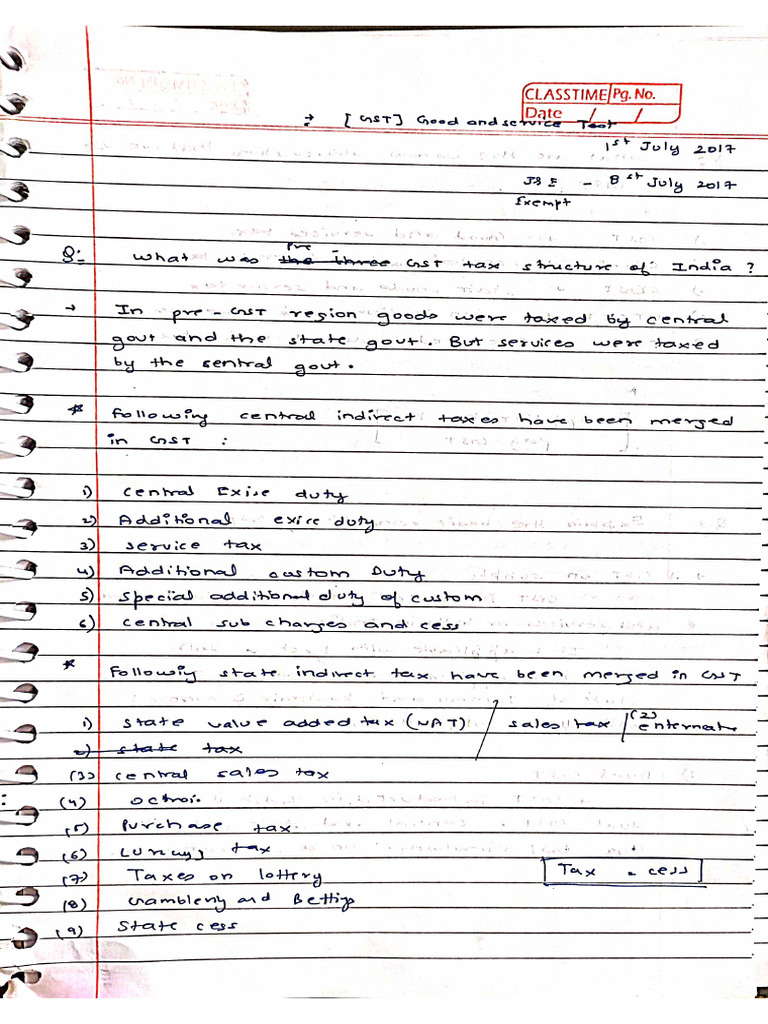 CLASSTIME Pg. No.
Date / /
→ [GST] Good and service Teat
1st July 2017
J&K - 8st July 2017
Exempt
Q:- What was the three pre - GST tax structure of India ?
→ In pre-GST region goods were taxed by central
govt and the state govt. But services were taxed
by the sentral govt.
* Following central indirect taxes have been merged
in GST :
1) Central Exise duty
2) Additional exire duty
3) service tax
4) Additional custom Duty
5) special additional duty of custom
6) central sub charges and cess
* Followiy state indirect tax have been merged in GST
1) State value added tax (VAT) / sales tax | (2) enternate
2) state tax
(3) central sales tax
(4) octroi.
(5) Purchase tax
(6) Luxuay tax
(7) Taxes on lottery
Tax = cess
(8) Gambleny and Bettig
(9) State cess